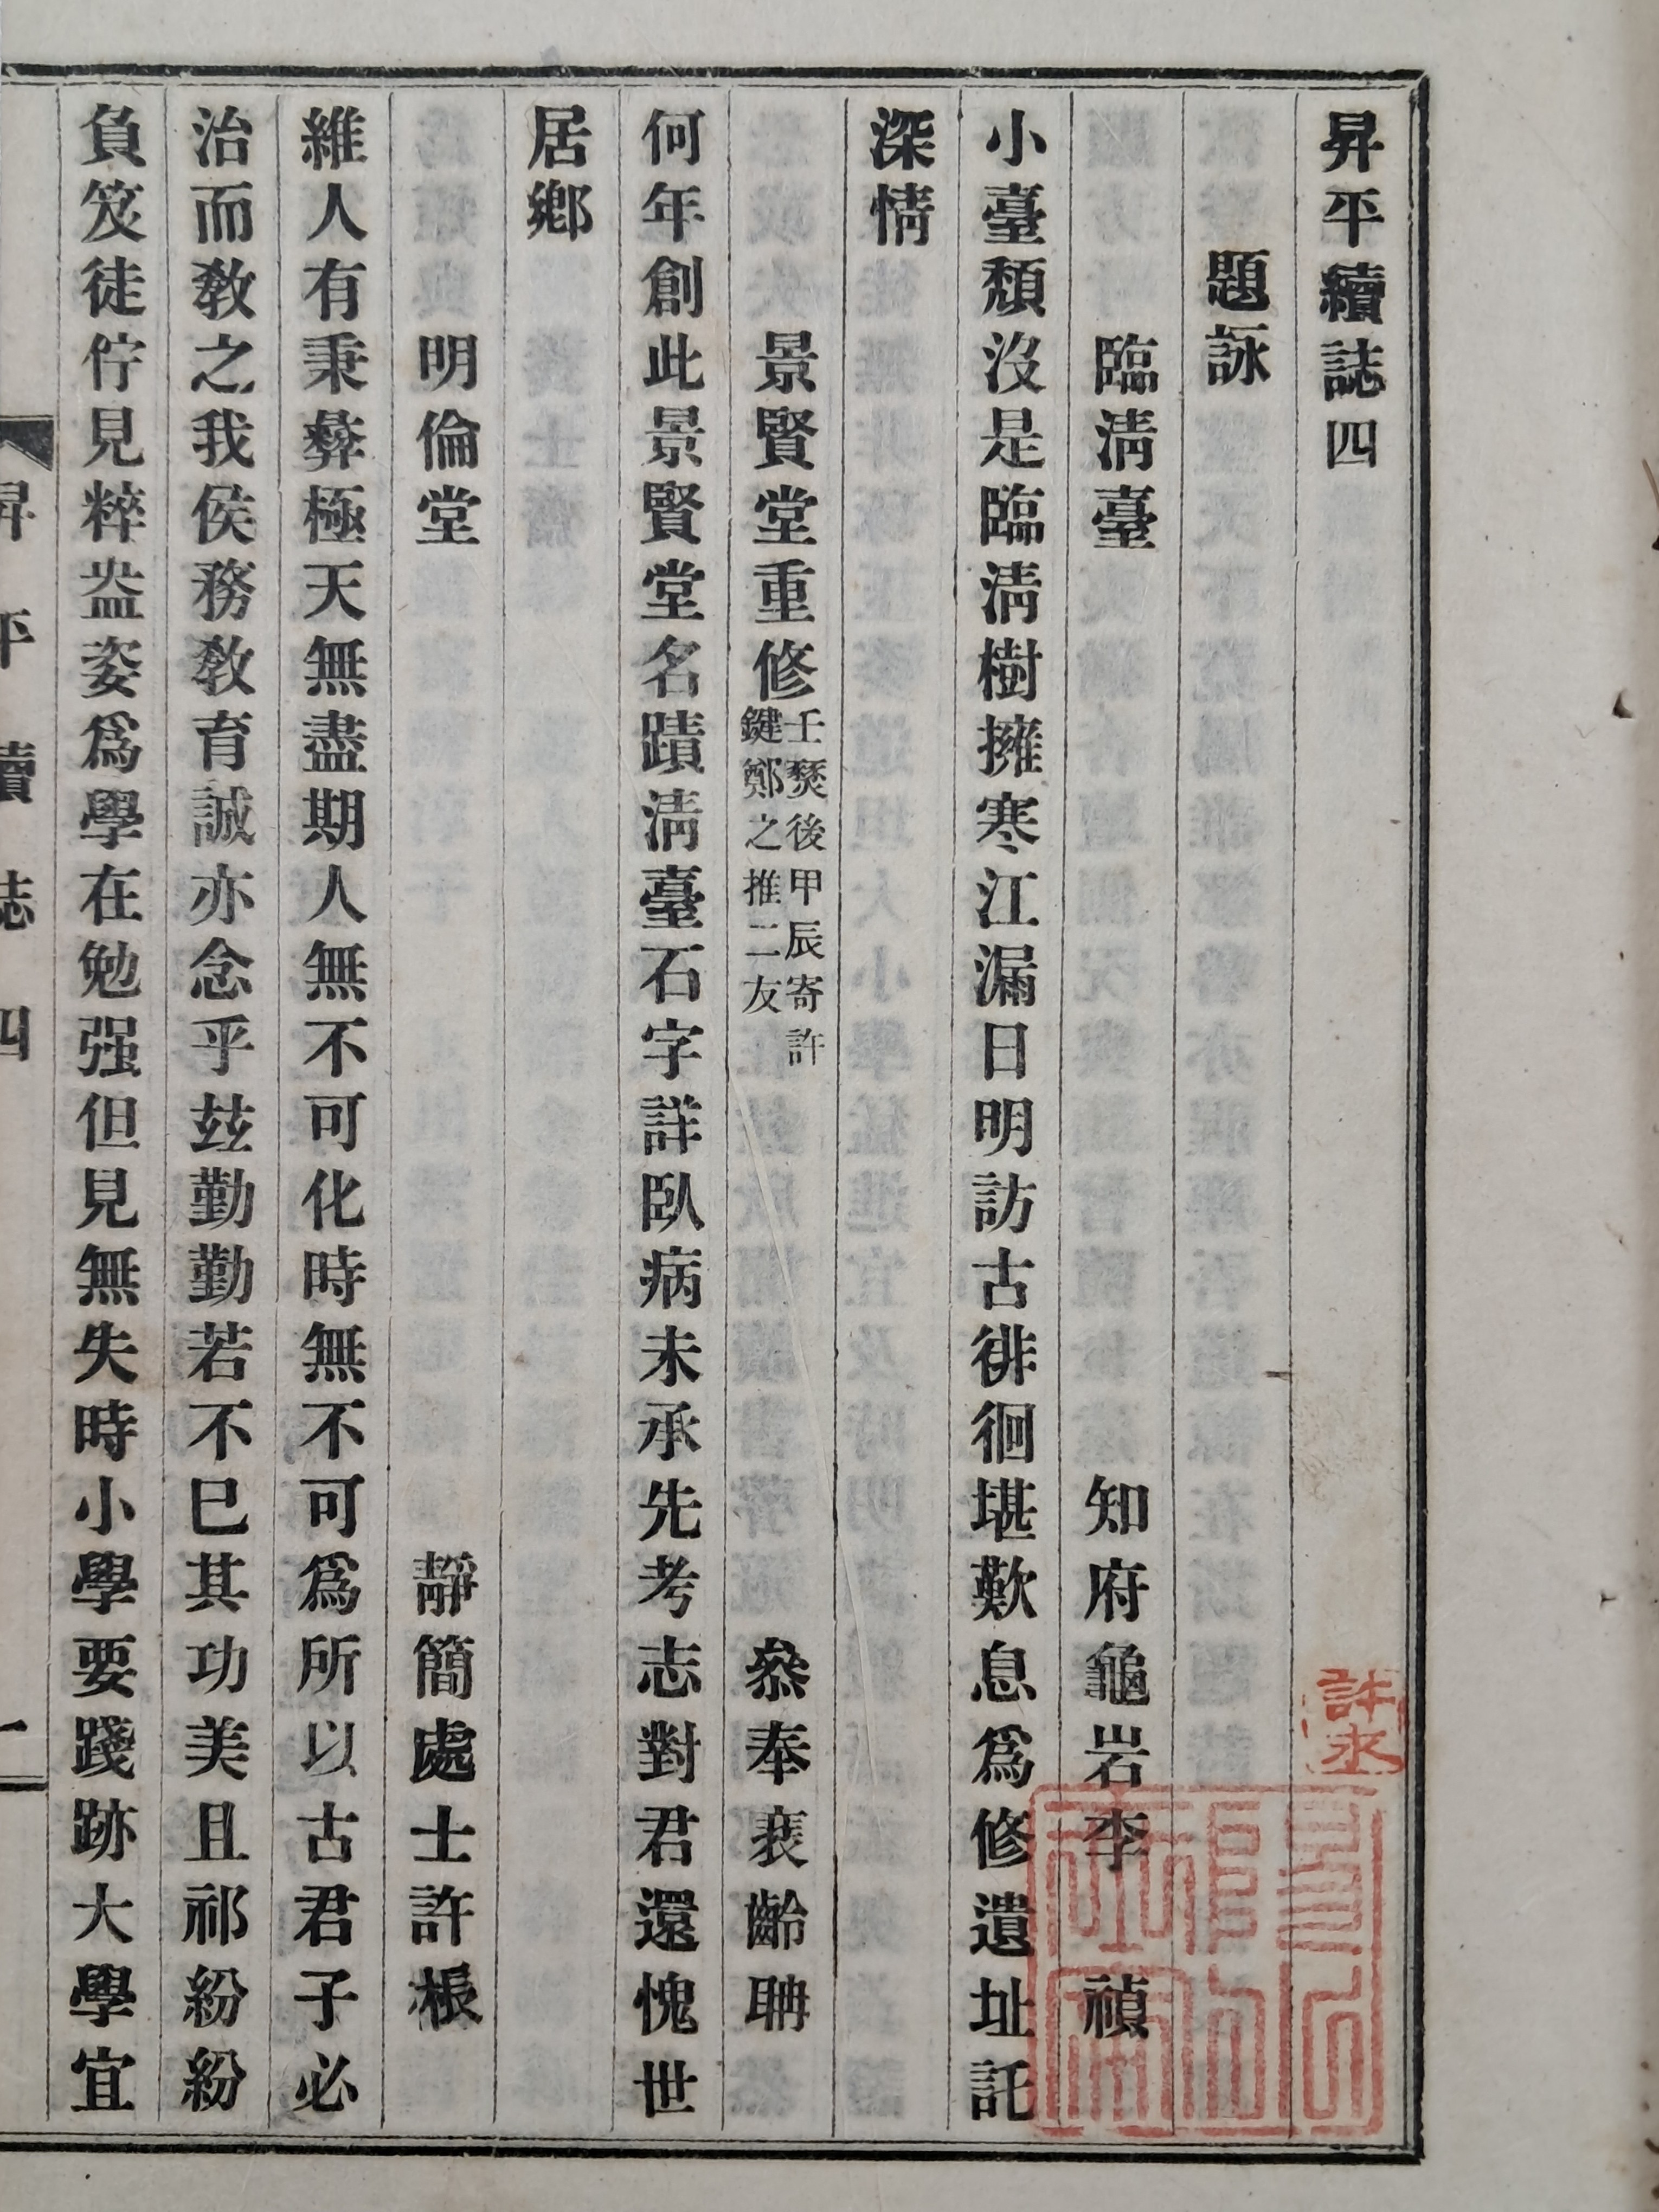 昇平續誌四
題詠
臨淸臺　知府龜岩李　禎
小臺頹沒是臨淸樹擁寒江漏日明訪古徘徊堪歎息爲修遺址託
深情
景賢堂重修　壬燹後甲辰寄許
鍵鄭之推二友　叅奉裵齡聃
何年創此景賢堂名蹟淸臺石字詳臥病未承先考志對君還愧世
居鄕
明倫堂　靜簡處士許根
維人有秉彜極天無盡期人無不可化時無不可爲所以古君子必
治而敎之我侯務敎育誠亦念乎玆勤勤若不已其功美且祁紛紛
負笈徒佇見粹盎姿爲學在勉强但見無失時小學要踐跡大學宜
昇平續誌四　一
許永